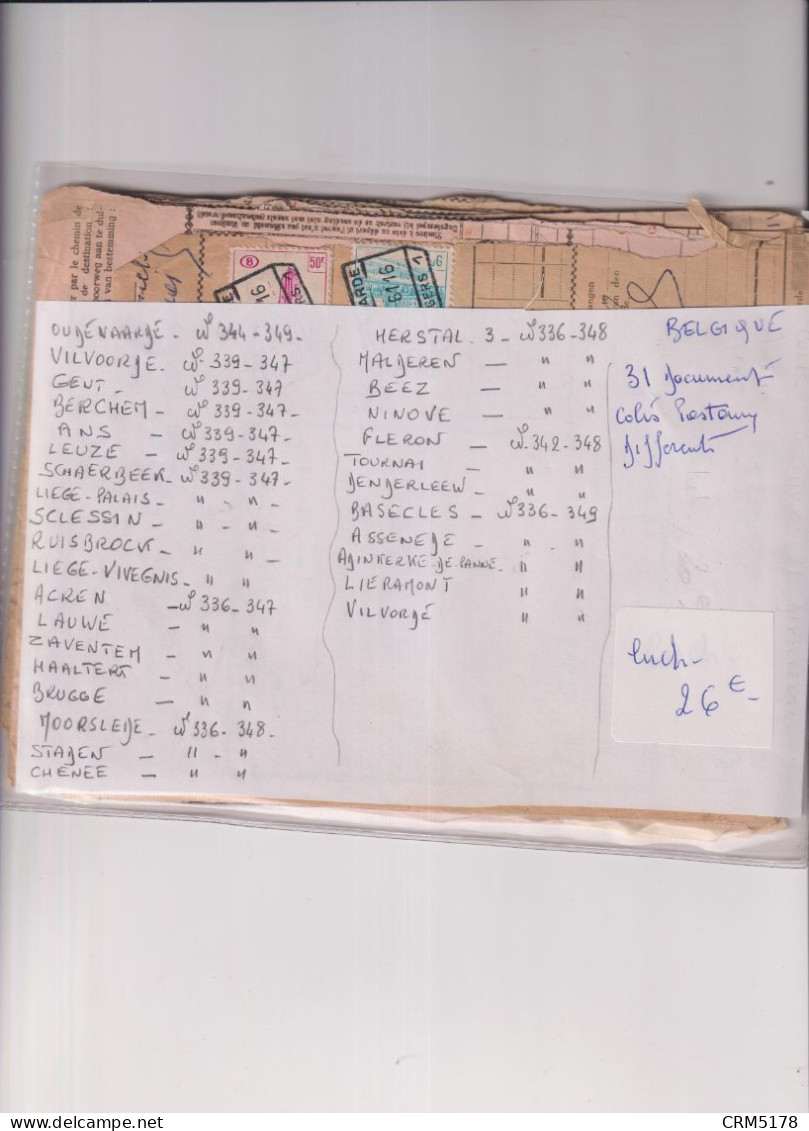 par le chemin de
de destination
oorweg aan te dui-
van bestemming :
B
50F
OUDENAARDE - No 344-349-
VILVOORDE. No 339-347
GENT - No 339-347
BERCHEM - No 339-347-
ANS - No 339-347-
LEUZE - No 339-347-
SCHAERBEEK - No 339-347-
LIEGE-PALAIS - " - " -
SCLESSIN - " - " -
RUISBROCK - " " -
LIEGE-VIVEGNIS - " "
ACREN - No 336-347
LAUWE - " "
ZAVENTEM - " "
HAALTERT - " "
BRUGGE - " "
MOORSLEDE - No 336-348-
STADEN - " - "
CHENEE - " "
HERSTAL. 3 - No 336-348
MALDEREN - " "
BEEZ - " "
NINOVE - " "
FLERON - No 342-348
TOURNAI - " "
DENDERLEEUW - " "
BASECLES - No 336-349
ASSENEDE - " "
ADINKERKE-DE-PANNE - " "
LIERAMONT " "
VILVORDE " "
BELGIQUE
31 Document
Colis Postaux
Différents
ench-
26 €-
CRM5178